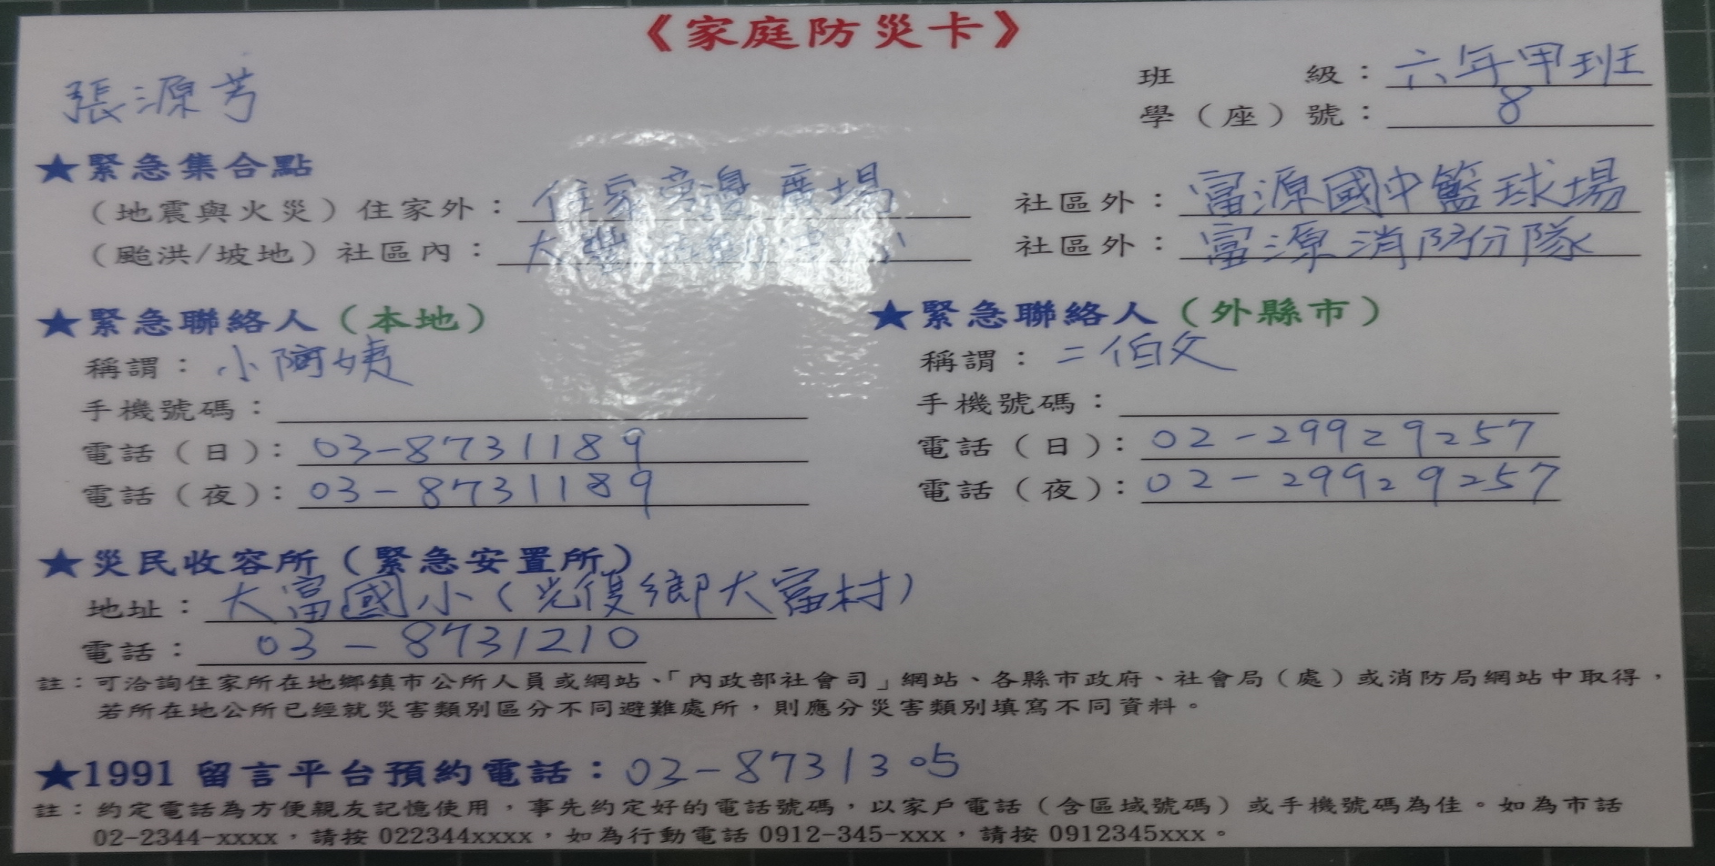 《家庭防災卡》
張源芳
班 級：六年甲班
學（座）號：8
★緊急集合點
（地震與火災）住家外：住家旁邊廣場 社區外：富源國中籃球場
（颱洪/坡地）社區內：大豐 社區外：富源消防分隊
★緊急聯絡人（本地） ★緊急聯絡人（外縣市）
稱謂：小阿姨 稱謂：二伯父
手機號碼： 手機號碼：
電話（日）：03-8731189 電話（日）：02-29929257
電話（夜）：03-8731189 電話（夜）：02-29929257
★災民收容所（緊急安置所）
地址：大富國小（光復鄉大富村）
電話：03-8731210
註：可洽詢住家所在地鄉鎮市公所人員或網站、「內政部社會司」網站、各縣市政府、社會局（處）或消防局網站中取得，
若所在地公所已經就災害類別區分不同避難處所，則應分災害類別填寫不同資料。
★1991 留言平台預約電話：03-8731305
註：約定電話為方便親友記憶使用，事先約定好的電話號碼，以家戶電話（含區域號碼）或手機號碼為佳。如為市話
02-2344-xxxx，請按 022344xxxx，如為行動電話 0912-345-xxx，請按 0912345xxx。